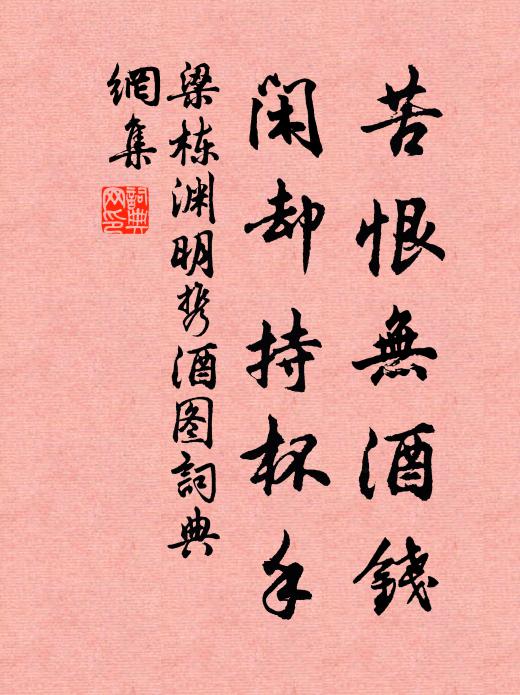 苦恨無酒錢
閑却持杯手
梁栋渊明携酒图詞典
網集
詞典網印